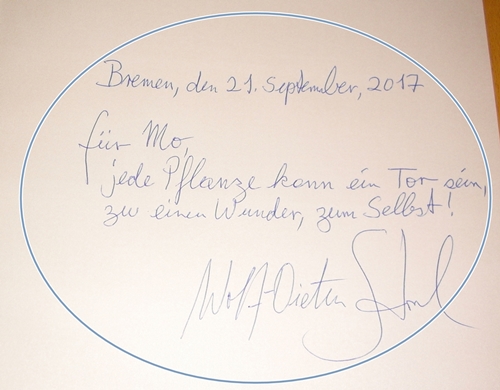 Bremen, den 21. September, 2017
für Mo,
jede Pflanze kann ein Tor sein,
zu einen Wunder, zum Selbst!
Wolf-Dieter Storl